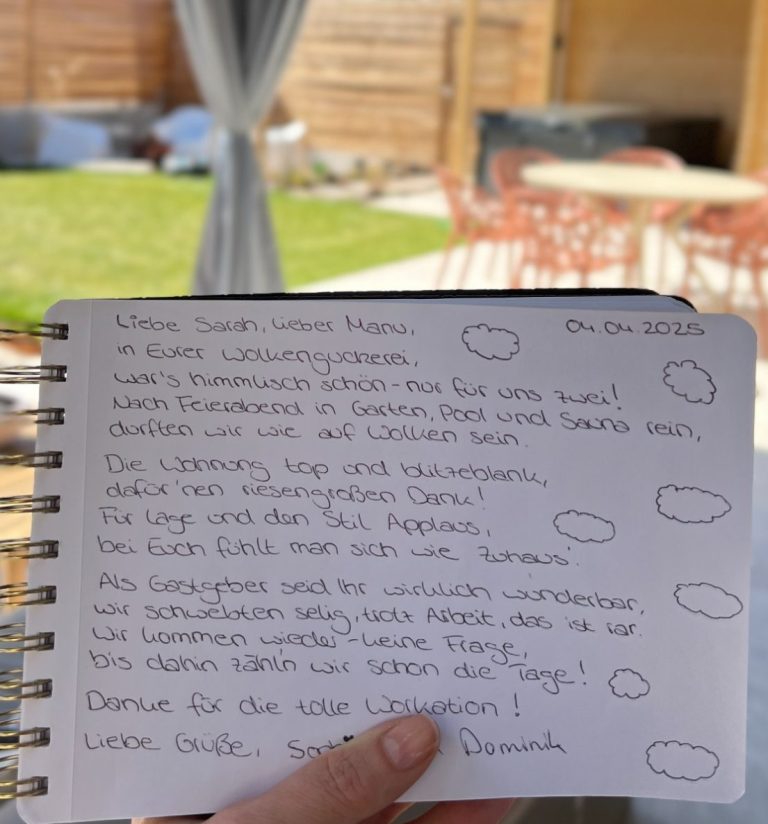 Liebe Sarah, lieber Manu,
04.04.2025
in Eurer Wolkenguckerei,
war's himmlisch schön - nur für uns zwei!
Nach Feierabend in Garten, Pool und Sauna rein,
durften wir wie auf Wolken sein.
Die Wohnung top und blitzeblank,
dafür 'nen riesengroßen Dank!
Für Lage und den Stil Applaus,
bei Euch fühlt man sich wie Zuhaus'.
Als Gastgeber seid Ihr wirklich wunderbar,
wir schwebten selig, trotz Arbeit, das ist rar.
Wir kommen wieder - keine Frage,
bis dahin zähl'n wir schon die Tage!
Danke für die tolle Workation!
Liebe Grüße, Dominik